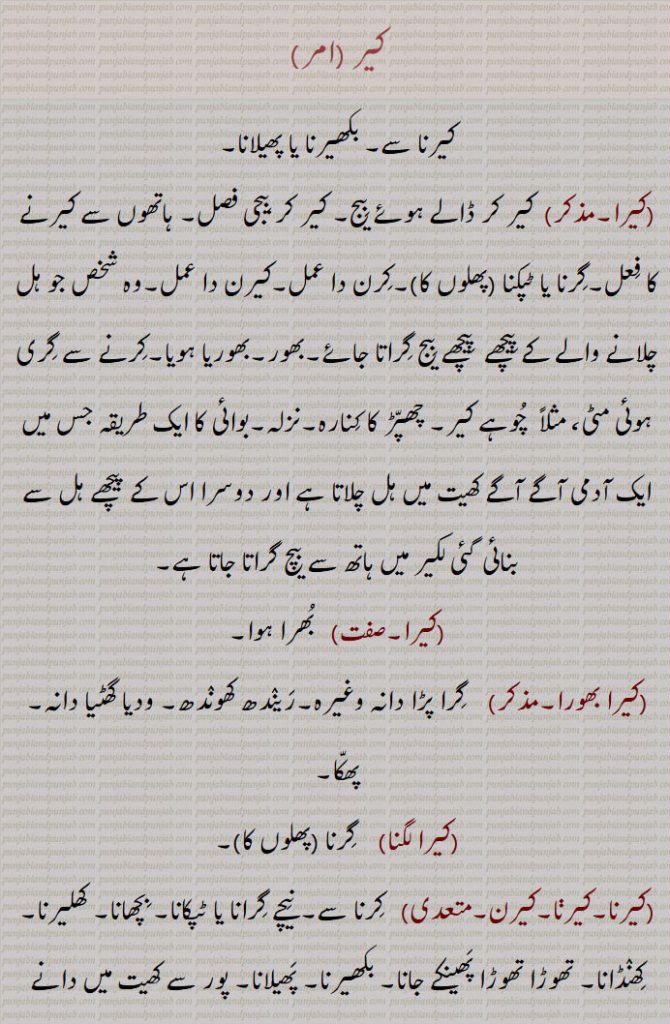 کیر (امر)
کیرنا سے۔ بکھیرنا یا پھیلانا۔
(کیرا۔مذکر) کیر کر ڈالے ہوئے بیج۔ کیر کر بیجی فصل۔ ہاتھوں سے کیرنے
کا فِعل۔گِرنا یا ٹپکنا (پھلوں کا)۔کِرن دا عمل۔کیرن دا عمل۔وہ شخص جو ہل
چلانے والے کے پیچھے پیچھے بیج گِراتا جائے۔بھور۔بھوریا ہویا۔کِرنے سے گِری
ہوئی مٹی، مثلاً چُوہے کیر۔ چھپّڑ کا کِنارہ۔نزلہ۔بوائی کا ایک طریقہ جس میں
ایک آدمی آگے آگے کھیت میں ہل چلاتا ہے اور دوسرا اس کے پیچھے ہل سے
بنائی گئی لکیر میں ہاتھ سے بیچ گراتا جاتا ہے۔
(کیرا۔صفت) بُھرا ہوا۔
(کیرا بھورا۔مذکر) گِرا پڑا دانہ وغیرہ۔رَینْدھ کھونْدھ۔ ودیا گھٹیا دانہ۔
پھکّا۔
(کیرا لگنا) گِرنا (پھلوں کا)۔
(کیرنا۔کیرنْا۔کیرن۔متعدی) کِرنا سے۔نیچے گِرانا یا ٹپکانا۔ بِچھانا۔ کھلیرنا۔
کِھنْڈانا۔ تھوڑا تھوڑا پَھینکے جانا۔ بکھیرنا۔ پَھیلانا۔ پور سے کھیت میں دانے
punjabiandpunjab.com